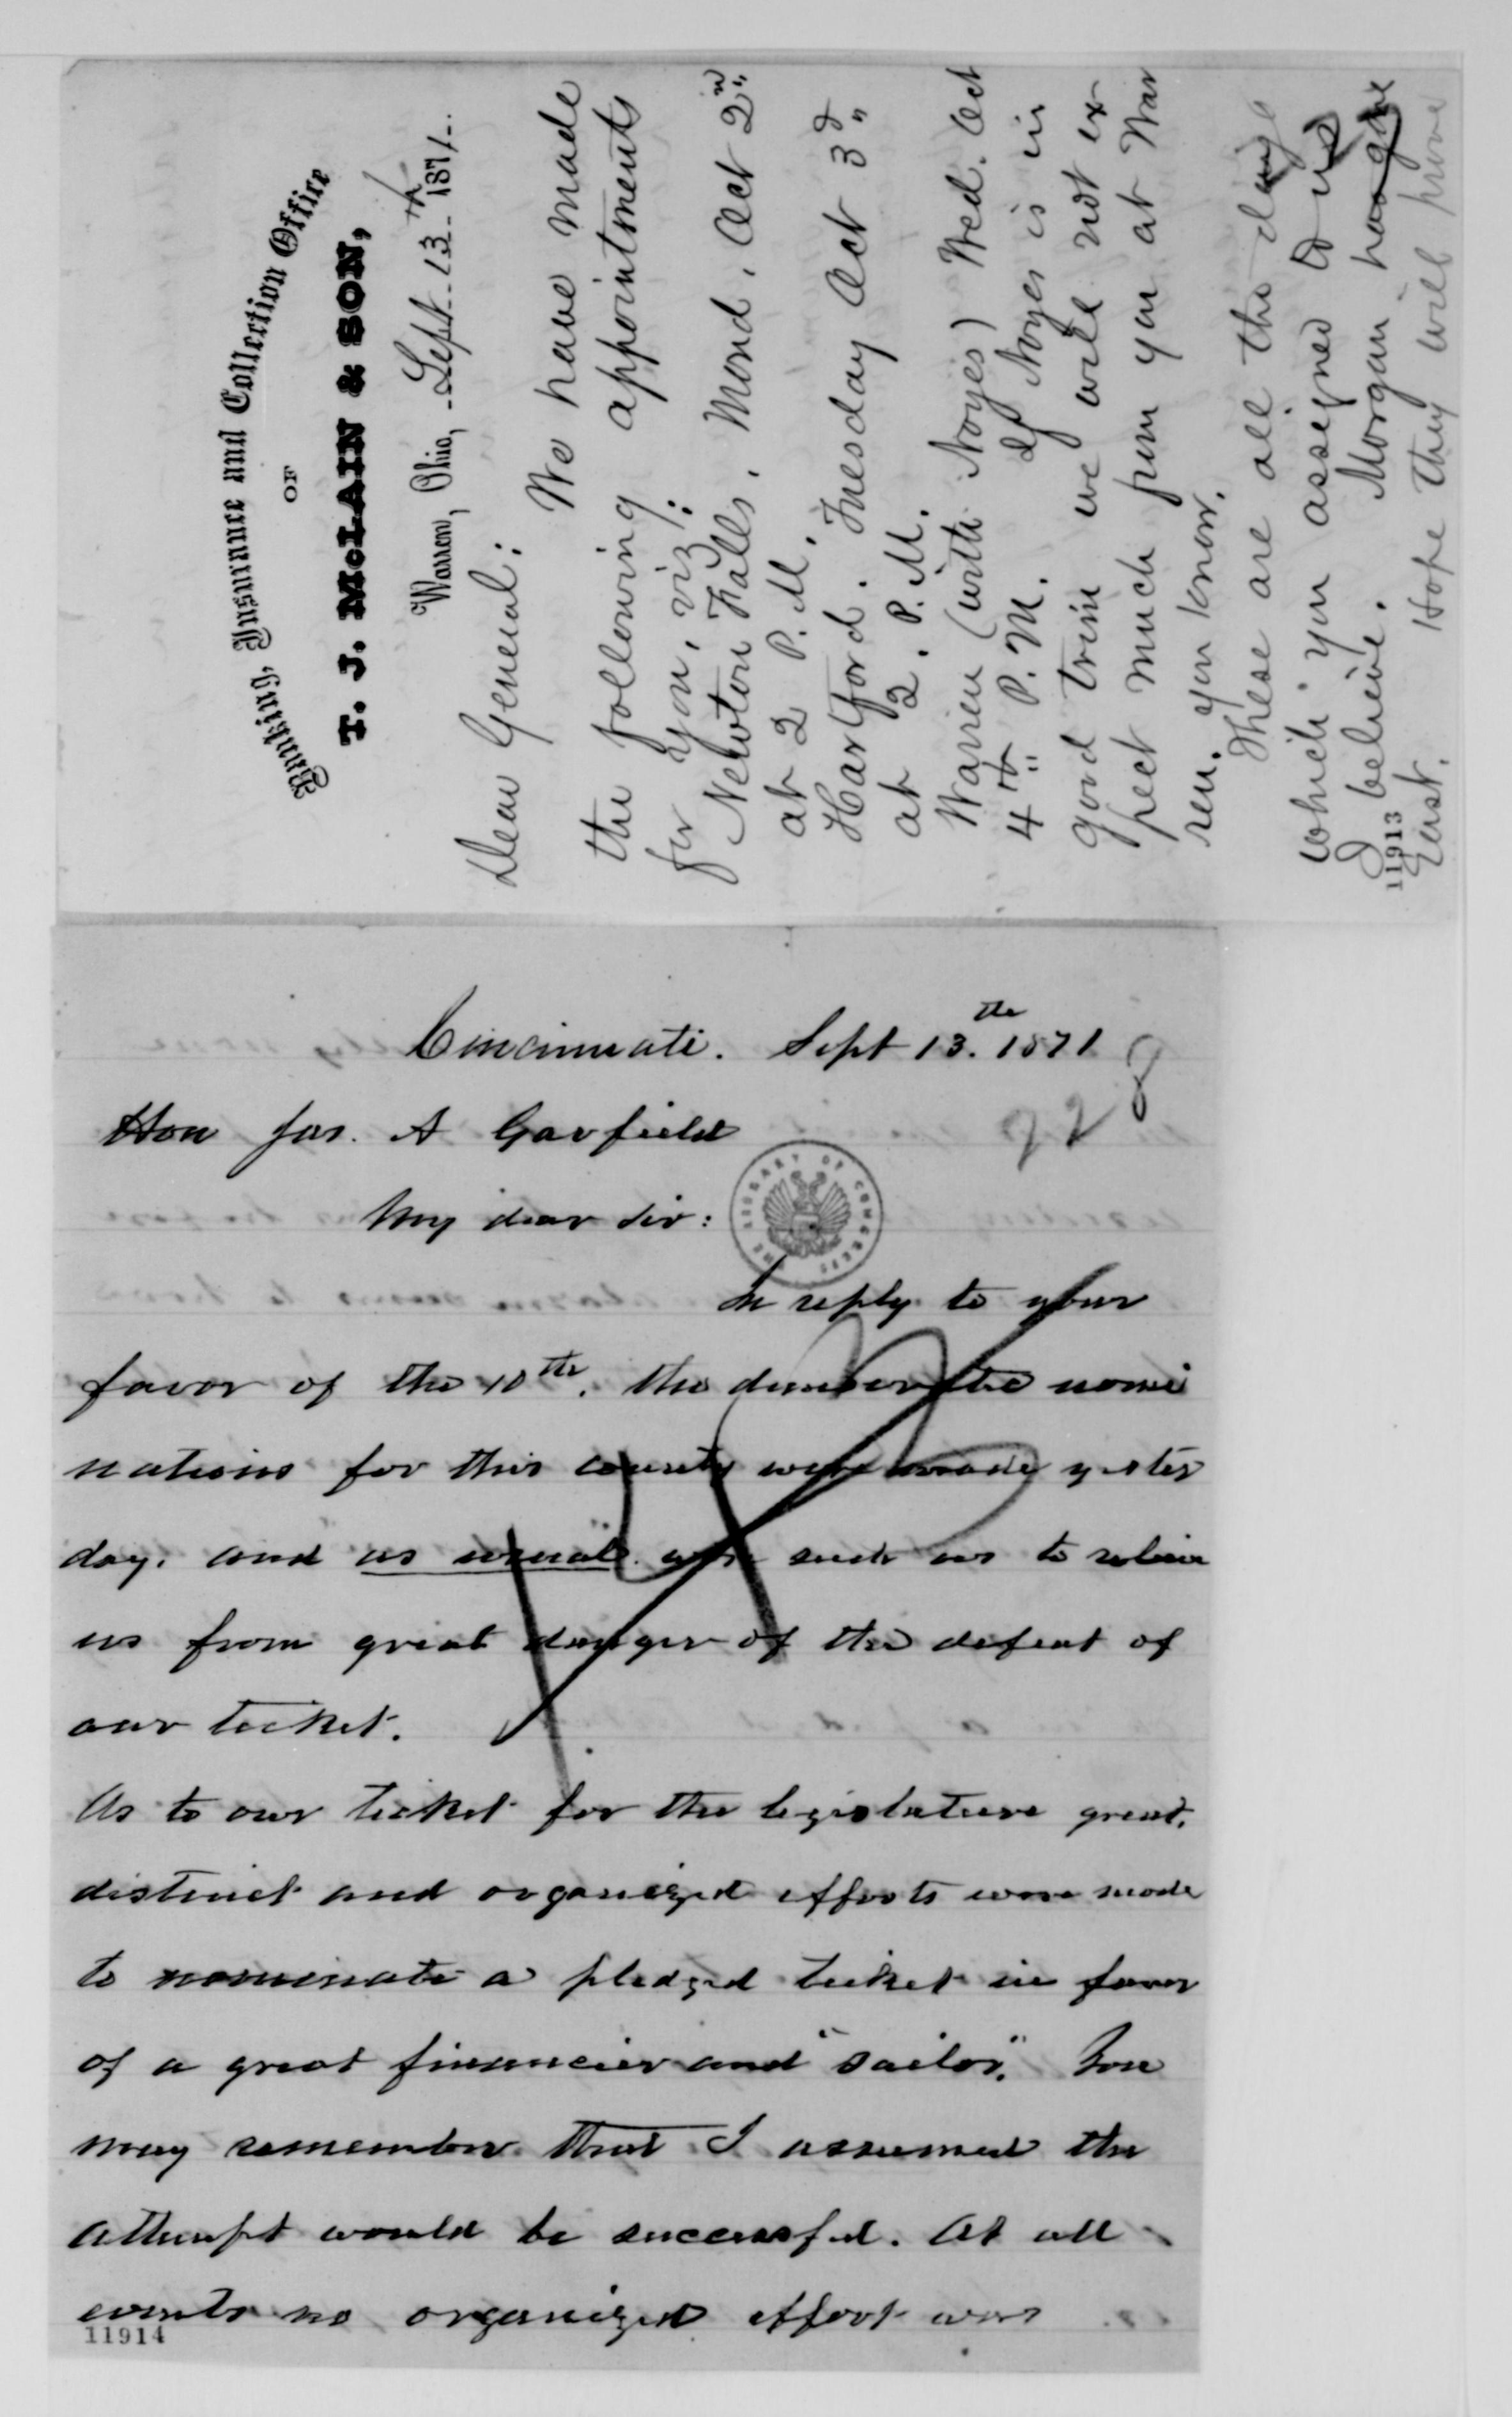 Banking, Insurance and Collection Office
OF
T. J. McLAIN & SON,
Warren, Ohio, Sept. 13th 1871.
Dear General:
We have made
the following appointments
for you, viz:
Newton Falls, Mond, Oct 2nd
at 2 P. M.
Hartford. Tuesday Oct 3d
at 2. P. M.
Warren (with Noyes) Wed. Oct
4th P. M. If Noyes is in
good trim we will not ex-
pect much from you at War
ren, you know.
These are all the days
which you assigned to us
I believe. Morgan has gone
East. Hope they will prove
11913
Cincinnati. Sept 13th. 1871
228
Hon Jas. A Garfield
My dear Sir:
THE LIBRARY OF CONGRESS
In reply to your
favor of the 10th. the democratic nomi
nations for this county were made yester
day. and "as usual" were such as to relieve
us from great danger of the defeat of
our ticket.
As to our ticket for the legislature great,
distinct and organized efforts were made
to nominate a pledged ticket in favor
of a great financier and "sailor." You
may remember that I assumed the
attempt would be successful. At all
events no organized effort was
11914